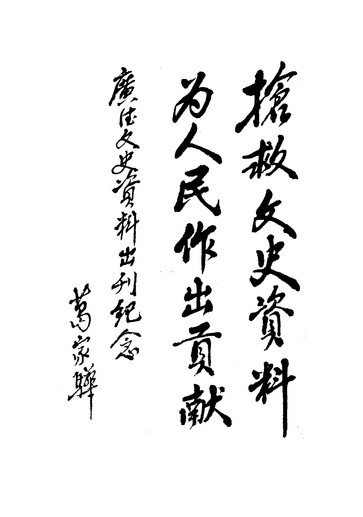 搶救文史資料
为人民作出貢献
廣德文史資料出刊紀念
葛家驊